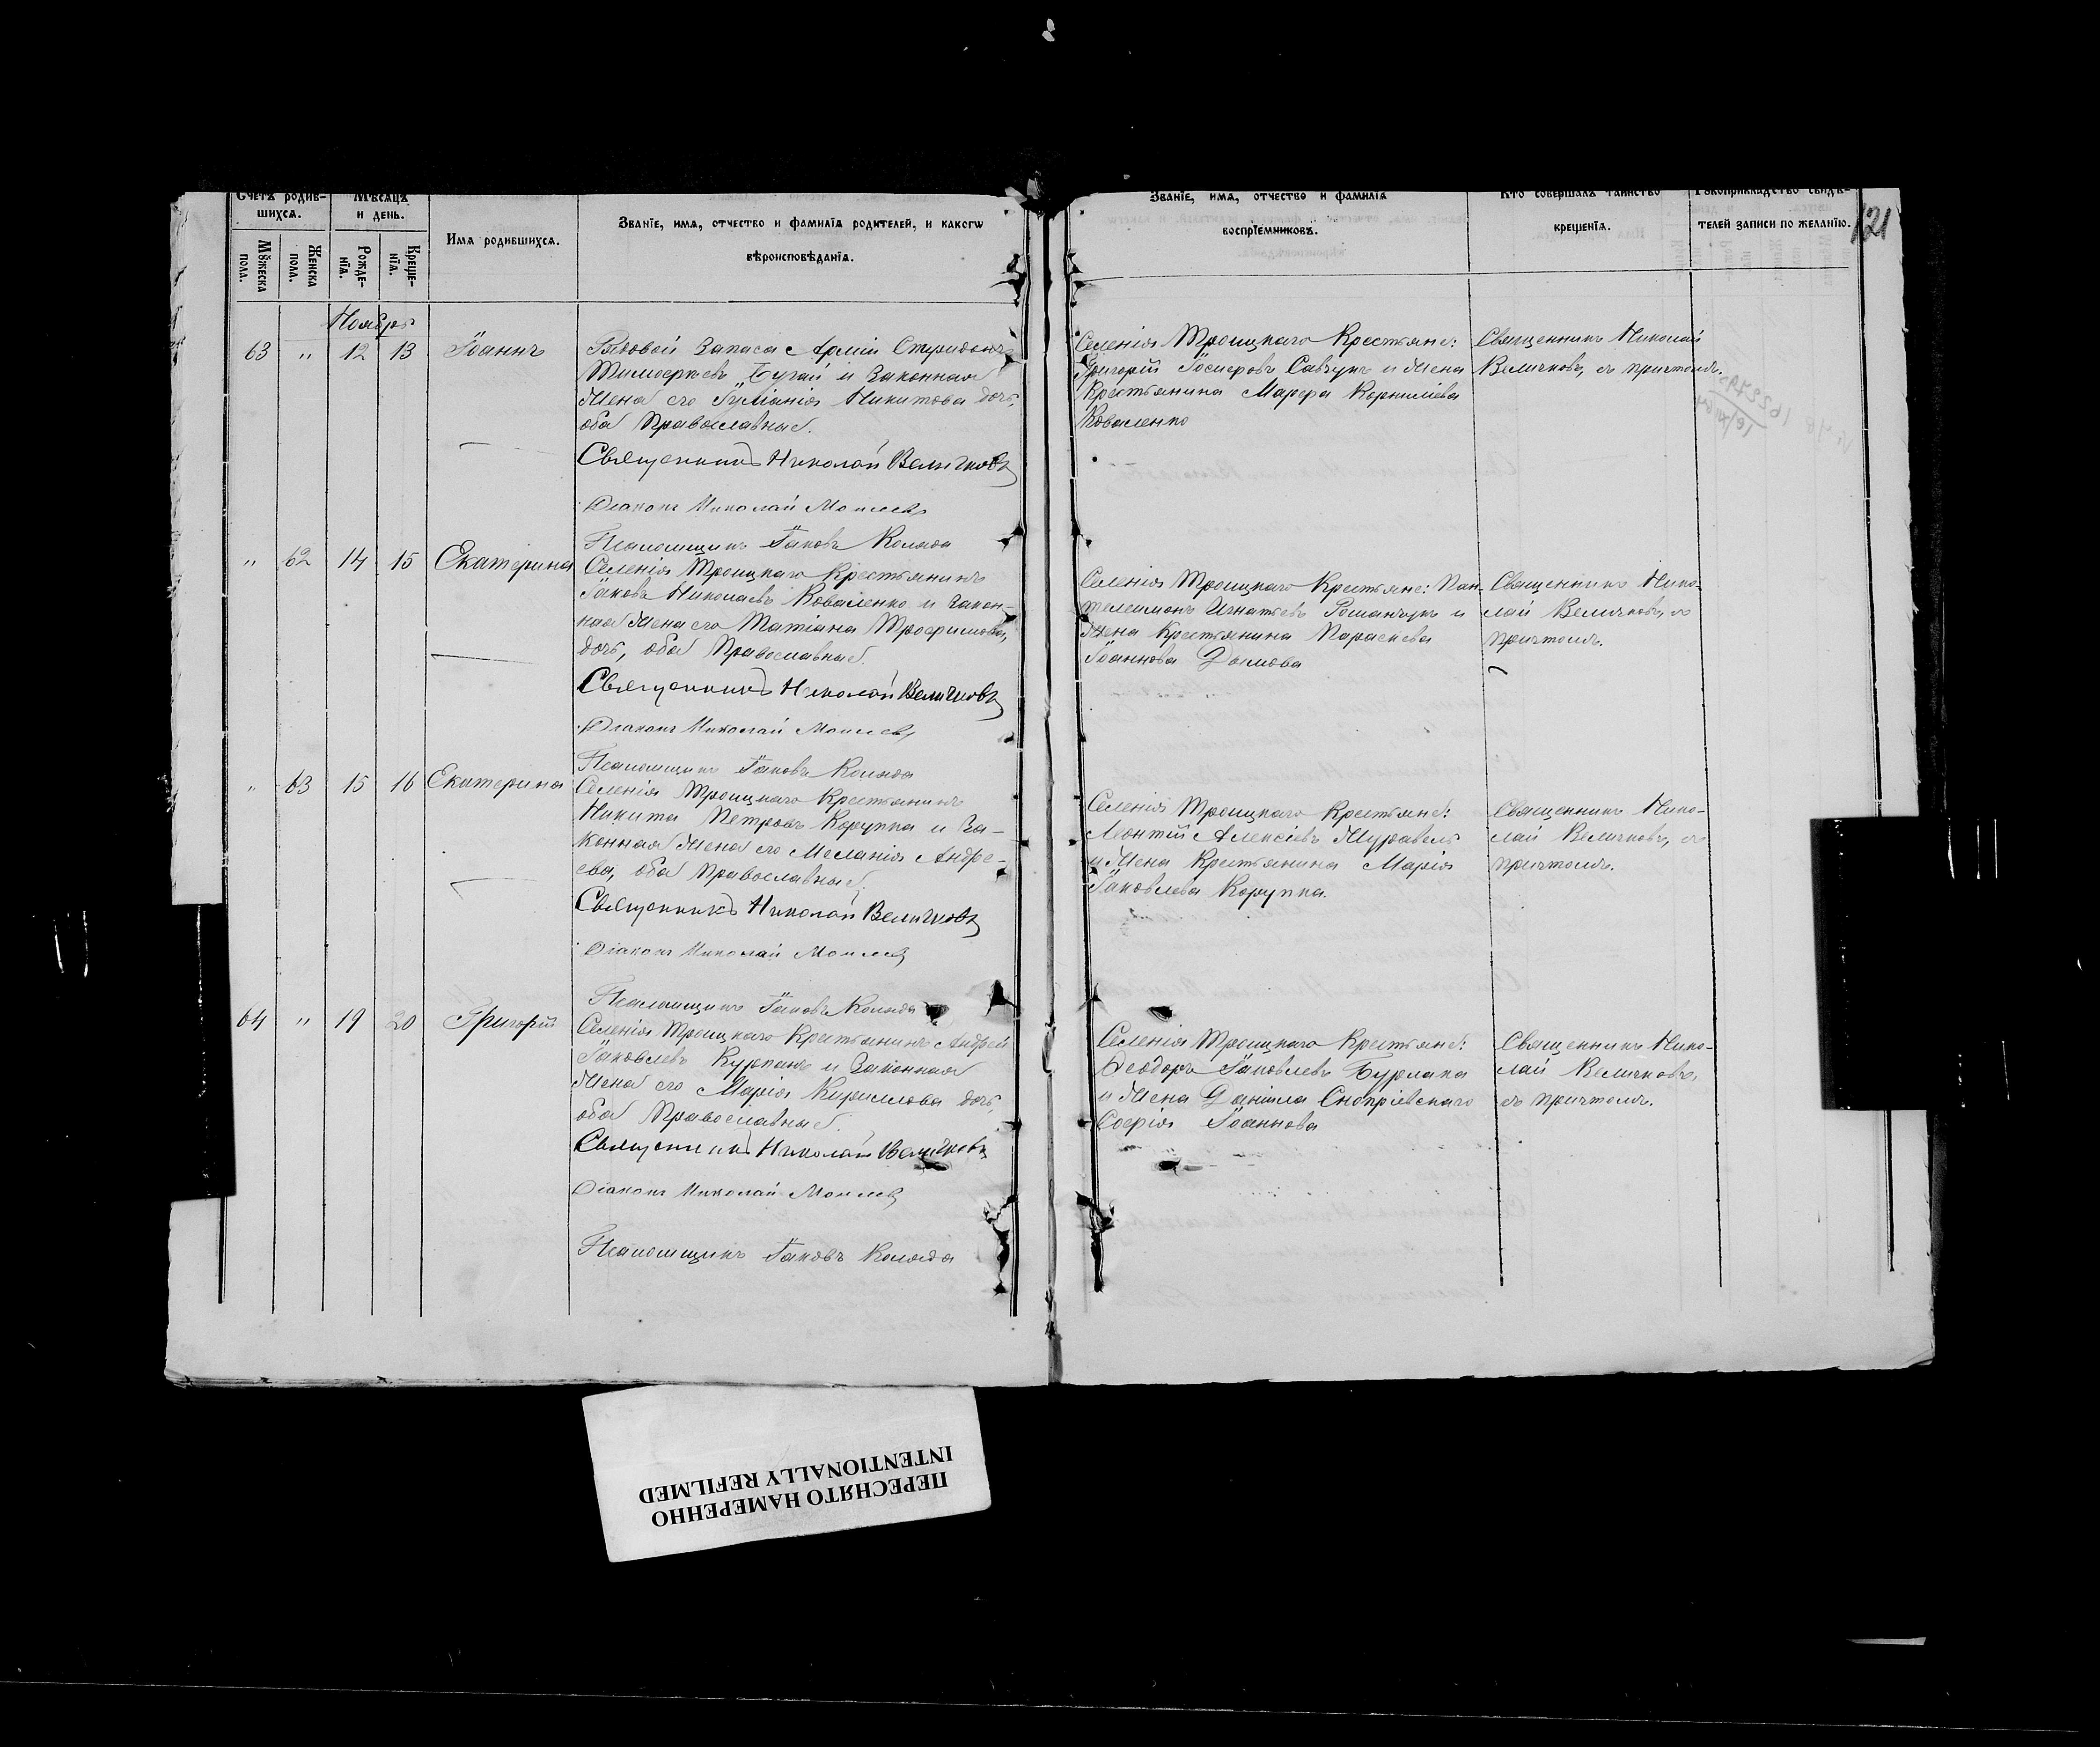 Счетъ родив-
шихсѧ.
Мѣсѧцъ
и день.
Мꙋжеска
пола.
Женска
пола.
Рожде-
нїѧ.
Креще-
нїѧ.
Имѧ родившихсѧ.
Званїе, имѧ, отчество и фамилїѧ родителей, и какогѡ
вѣроисповѣданїѧ.
Званїе, имѧ, отчество и фамилїѧ
воспрїемниковъ.
Кто совершалъ таинство
крещенїѧ.
Рꙋкоприкладство свидѣ-
телей записи по желанїю.
121
Ноябрь
63 " 12 13 Іоаннъ
Рядовой Запаса Арміи Спиридонъ
Тимофеевъ Бугай и Законная
Жена его Никитова дочь,
оба Православные.
Священникъ Николай Величковъ
Діаконъ Николай
Псаломщикъ Іаковъ Коляда
Селенія Троицкаго Крестьяне:
Григорій Іосифовъ Савчукъ и Жена
Крестьянина Марфа Корниліева
Коваленко
Священникъ Николай
Величковъ, съ причтомъ.
" 62 14 15 Екатерина
Селенія Троицкаго Крестьянинъ
Іаковъ Николаевъ Коваленко и Закон-
ная Жена его Татіана Трофимова,
дочь, оба Православные.
Священникъ Николай Величковъ
Діаконъ Николай
Псаломщикъ Іаковъ Коляда
Селенія Троицкаго Крестьяне: Пан-
телеимонъ Игнатьевъ Романчукъ и
Жена Крестьянина Параскева
Іоаннова Дымова
Священникъ Нико-
лай Величковъ, съ
причтомъ.
" 63 15 16 Екатерина
Селенія Троицкаго Крестьянинъ
Никита Петровъ Корупка и За-
конная Жена его Меланія Андре-
ева, оба Православные.
Священникъ Николай Величковъ
Діаконъ Николай
Псаломщикъ Іаковъ Коляда
Селенія Троицкаго Крестьяне:
Леонтій Алексіевъ Журавель
и Жена Крестьянина Марія
Іаковлева Корупка.
Священникъ Нико-
лай Величковъ, съ
причтомъ.
64 " 19 20 Григорій
Селенія Троицкаго Крестьянинъ Андрей
Іаковлевъ Курпанъ и Законная
Жена его Марія Кириллова дочь,
оба Православные.
Священникъ Николай Величковъ
Діаконъ Николай
Псаломщикъ Іаковъ Коляда
Селенія Троицкаго Крестьяне:
Феодоръ Іаковлевъ Бурлака
и Жена Даніила Снопріевскаго
Софія Іоаннова
Священникъ Нико-
лай Величковъ,
съ причтомъ.
ПЕРЕСНЯТО НАМЕРЕННО
INTENTIONALLY REFILMED